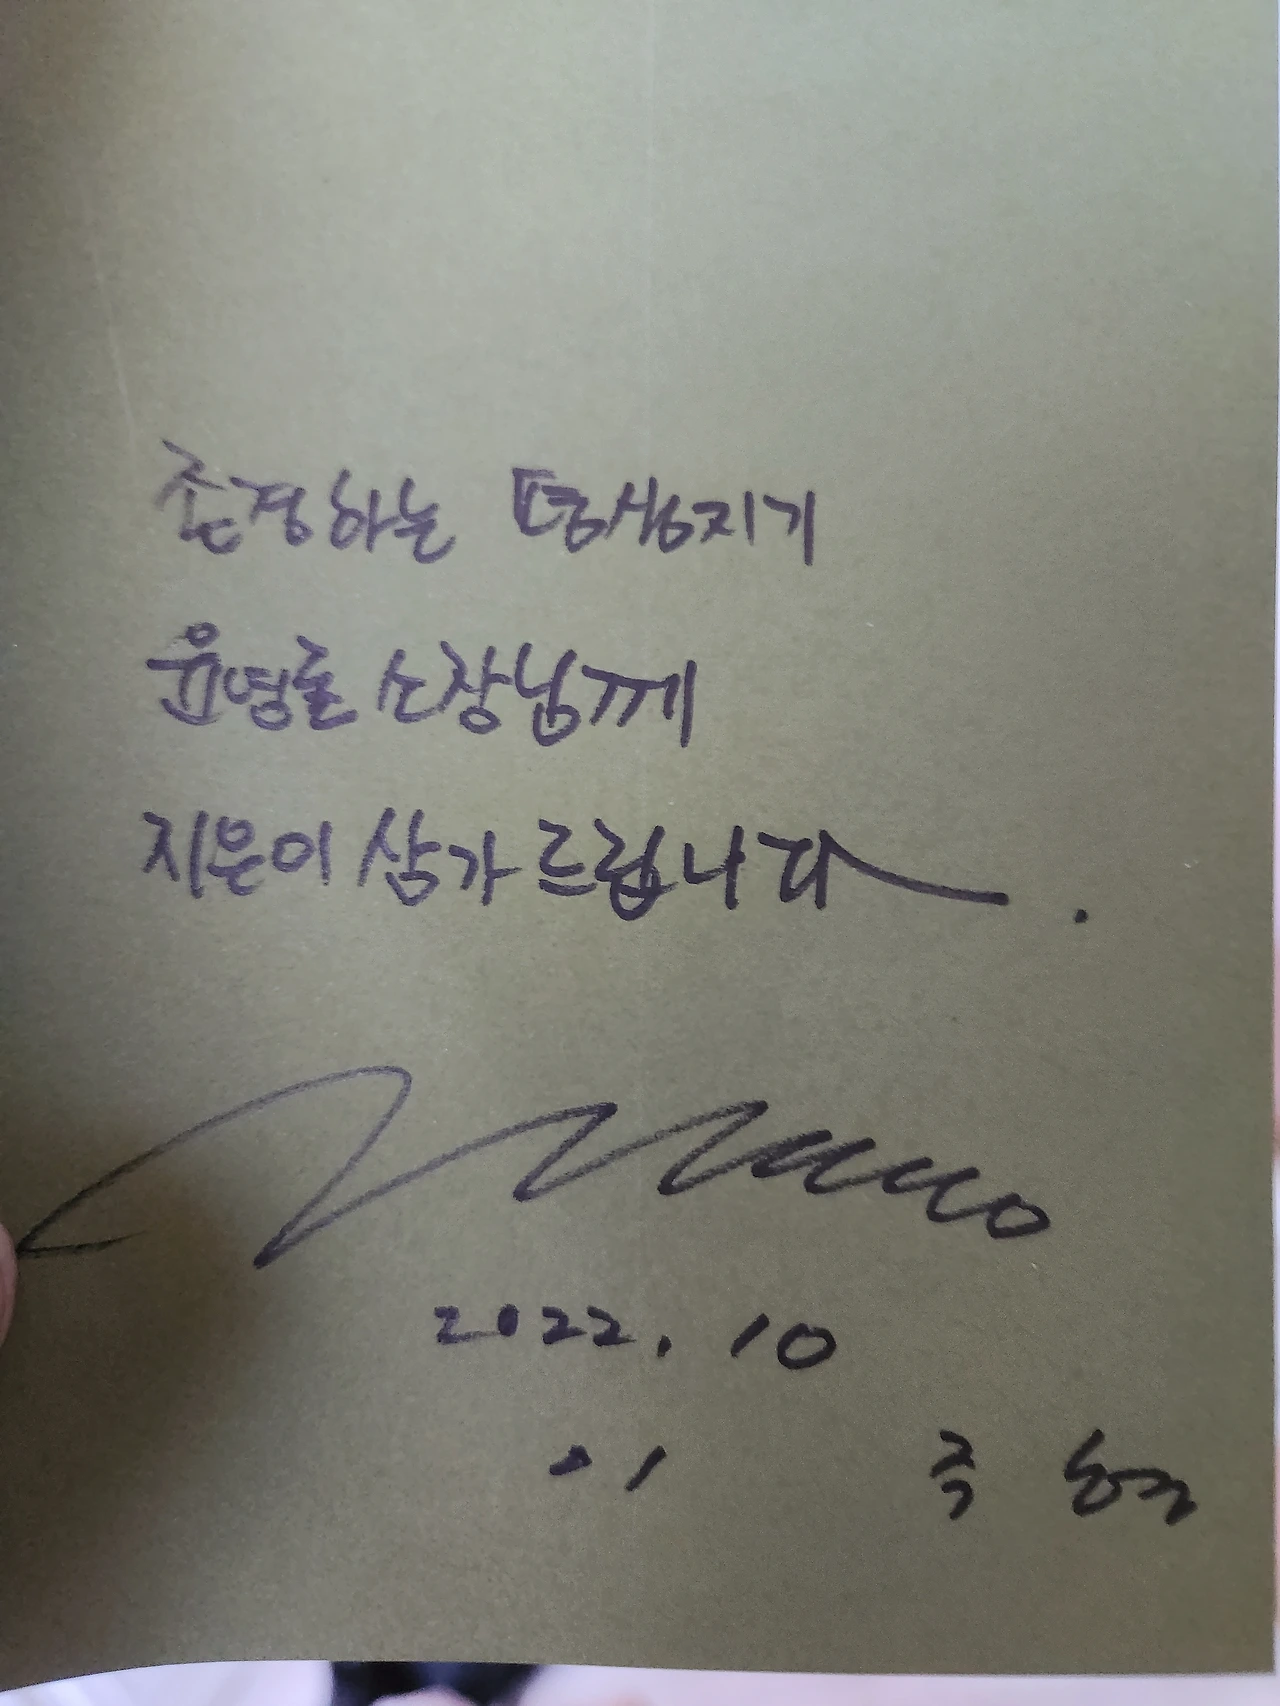 존경하는 평생지기
윤영호 소장님께
지은이 삼가 드립니다.
2022. 10
이